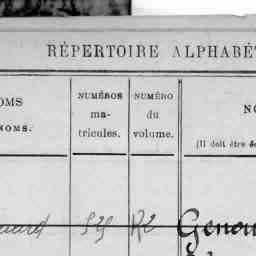 RÉPERTOIRE ALPHABÉ
OMS
NOMS.
NUMÉROS
ma-
tricules.
NUMÉRO
du
volume.
NO
(Il doit être
R2
Genou